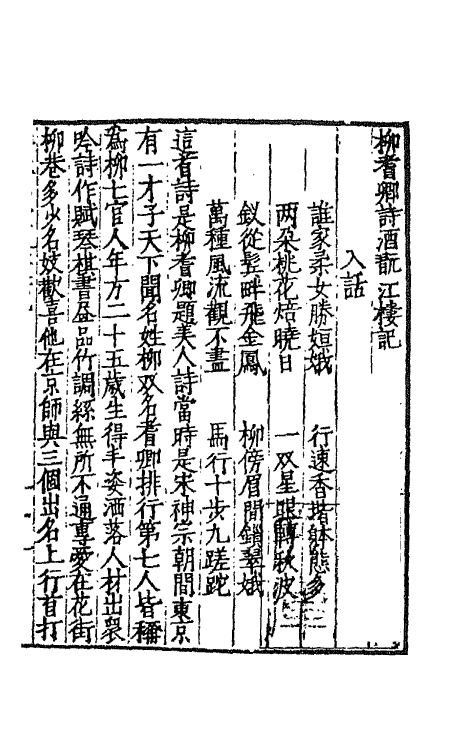 柳耆卿詩酒翫江樓記
入話
誰家柔女勝姮娥　行速香堦躰態多
两朵桃花焙曉日　一双星眼轉秋波
釵從髩畔飛金鳳　柳傍眉間鎖翠娥
萬種風流觀不盡　馬行十步九蹉跎
這首詩是柳耆卿題美人詩當時是宋神宗朝間東京
有一才子天下聞名姓柳双名耆卿排行第七人皆稱
為柳七官人年方二十五歲生得丰姿洒落人材出衆
吟詩作賦琴棋書畫品竹調絲無所不通專愛在花街
柳巷多少名妓歡喜他在京師與三個出名上行首打